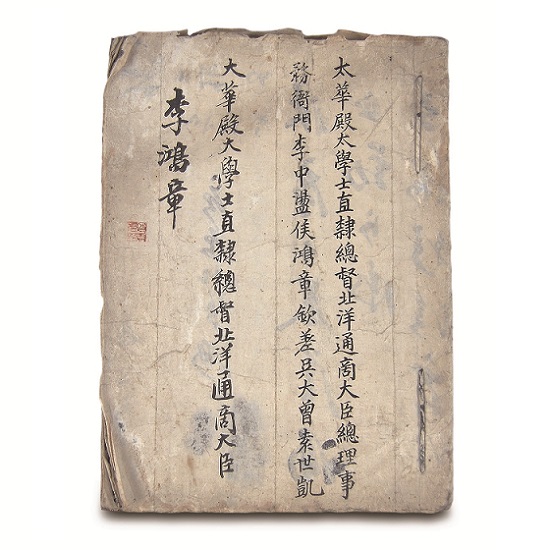 太華殿太學士直隸總督北洋通商大臣總理事
務衙門李中盪侯鴻章欽差兵大曾素世凱
大華殿大學士直隸總督北洋通商大臣
李鴻章